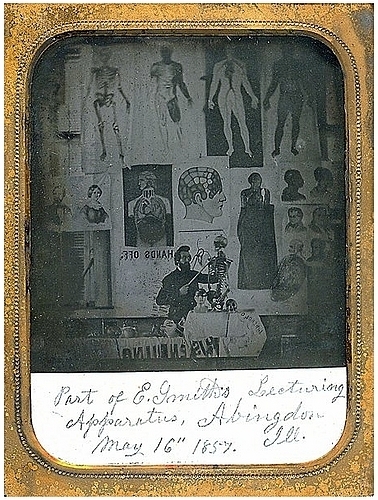 HANDS OFF.
Part of E. Smith's Lecturing
Apparatus, Abingdon
May 16" 1857. Ill.